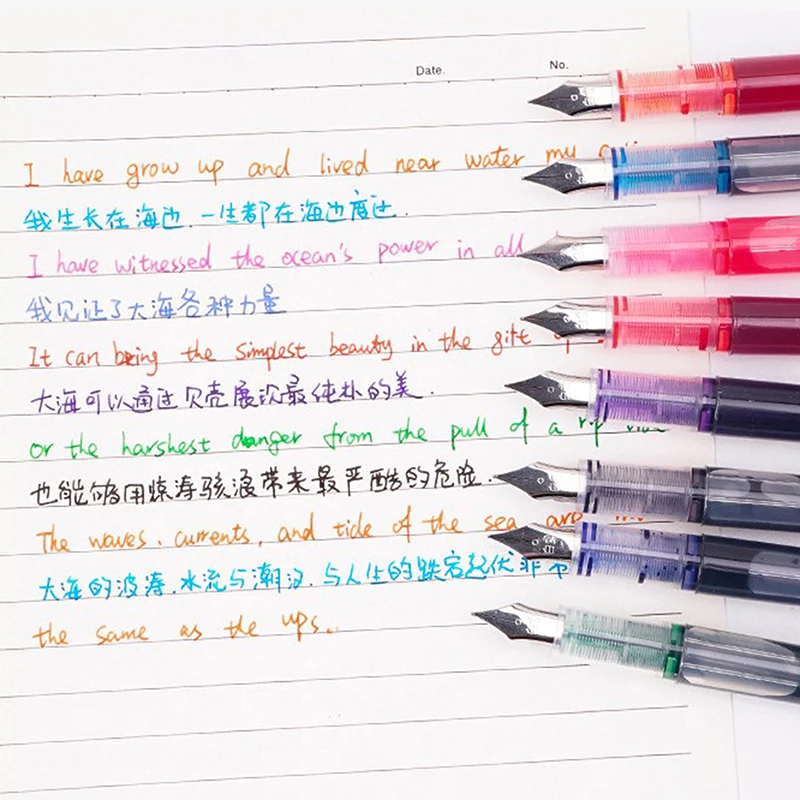 Date. No.
I have grow up and lived near water my
我生长在海边.一生都在海边度过.
I have witnessed the ocean's power in all
我见证了大海各种力量
It can bring the simplest beauty in the gift
大海可以通过贝壳展次最纯朴的美.
or the harshest danger from the pull of a rip
也能够用惊涛骇浪带来最严酷的危险.
The waves. currents, and tide of the sea are
大海的波涛.水流与潮汐.与人生的跌宕起伏非常
the same as the ups.